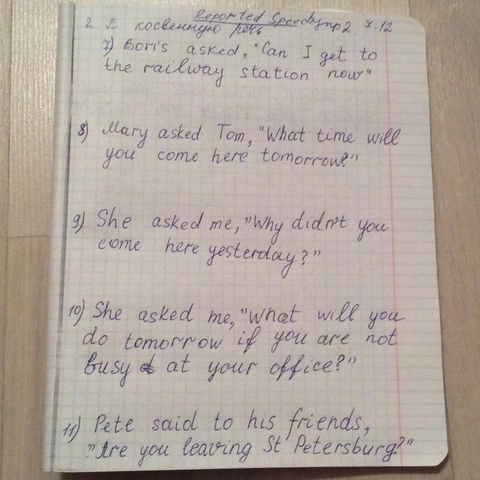 Reported Speech упр 2 7.12
2 В косвенную речь
7) Boris asked, "Can I get to
the railway station now"
8) Mary asked Tom, "What time will
you come here tomorrow?"
9) She asked me, "Why didn't you
come here yesterday?"
10) She asked me, "What will you
do tomorrow if you are not
busy at your office?"
11) Pete said to his friends,
"Are you leaving St Petersburg?"